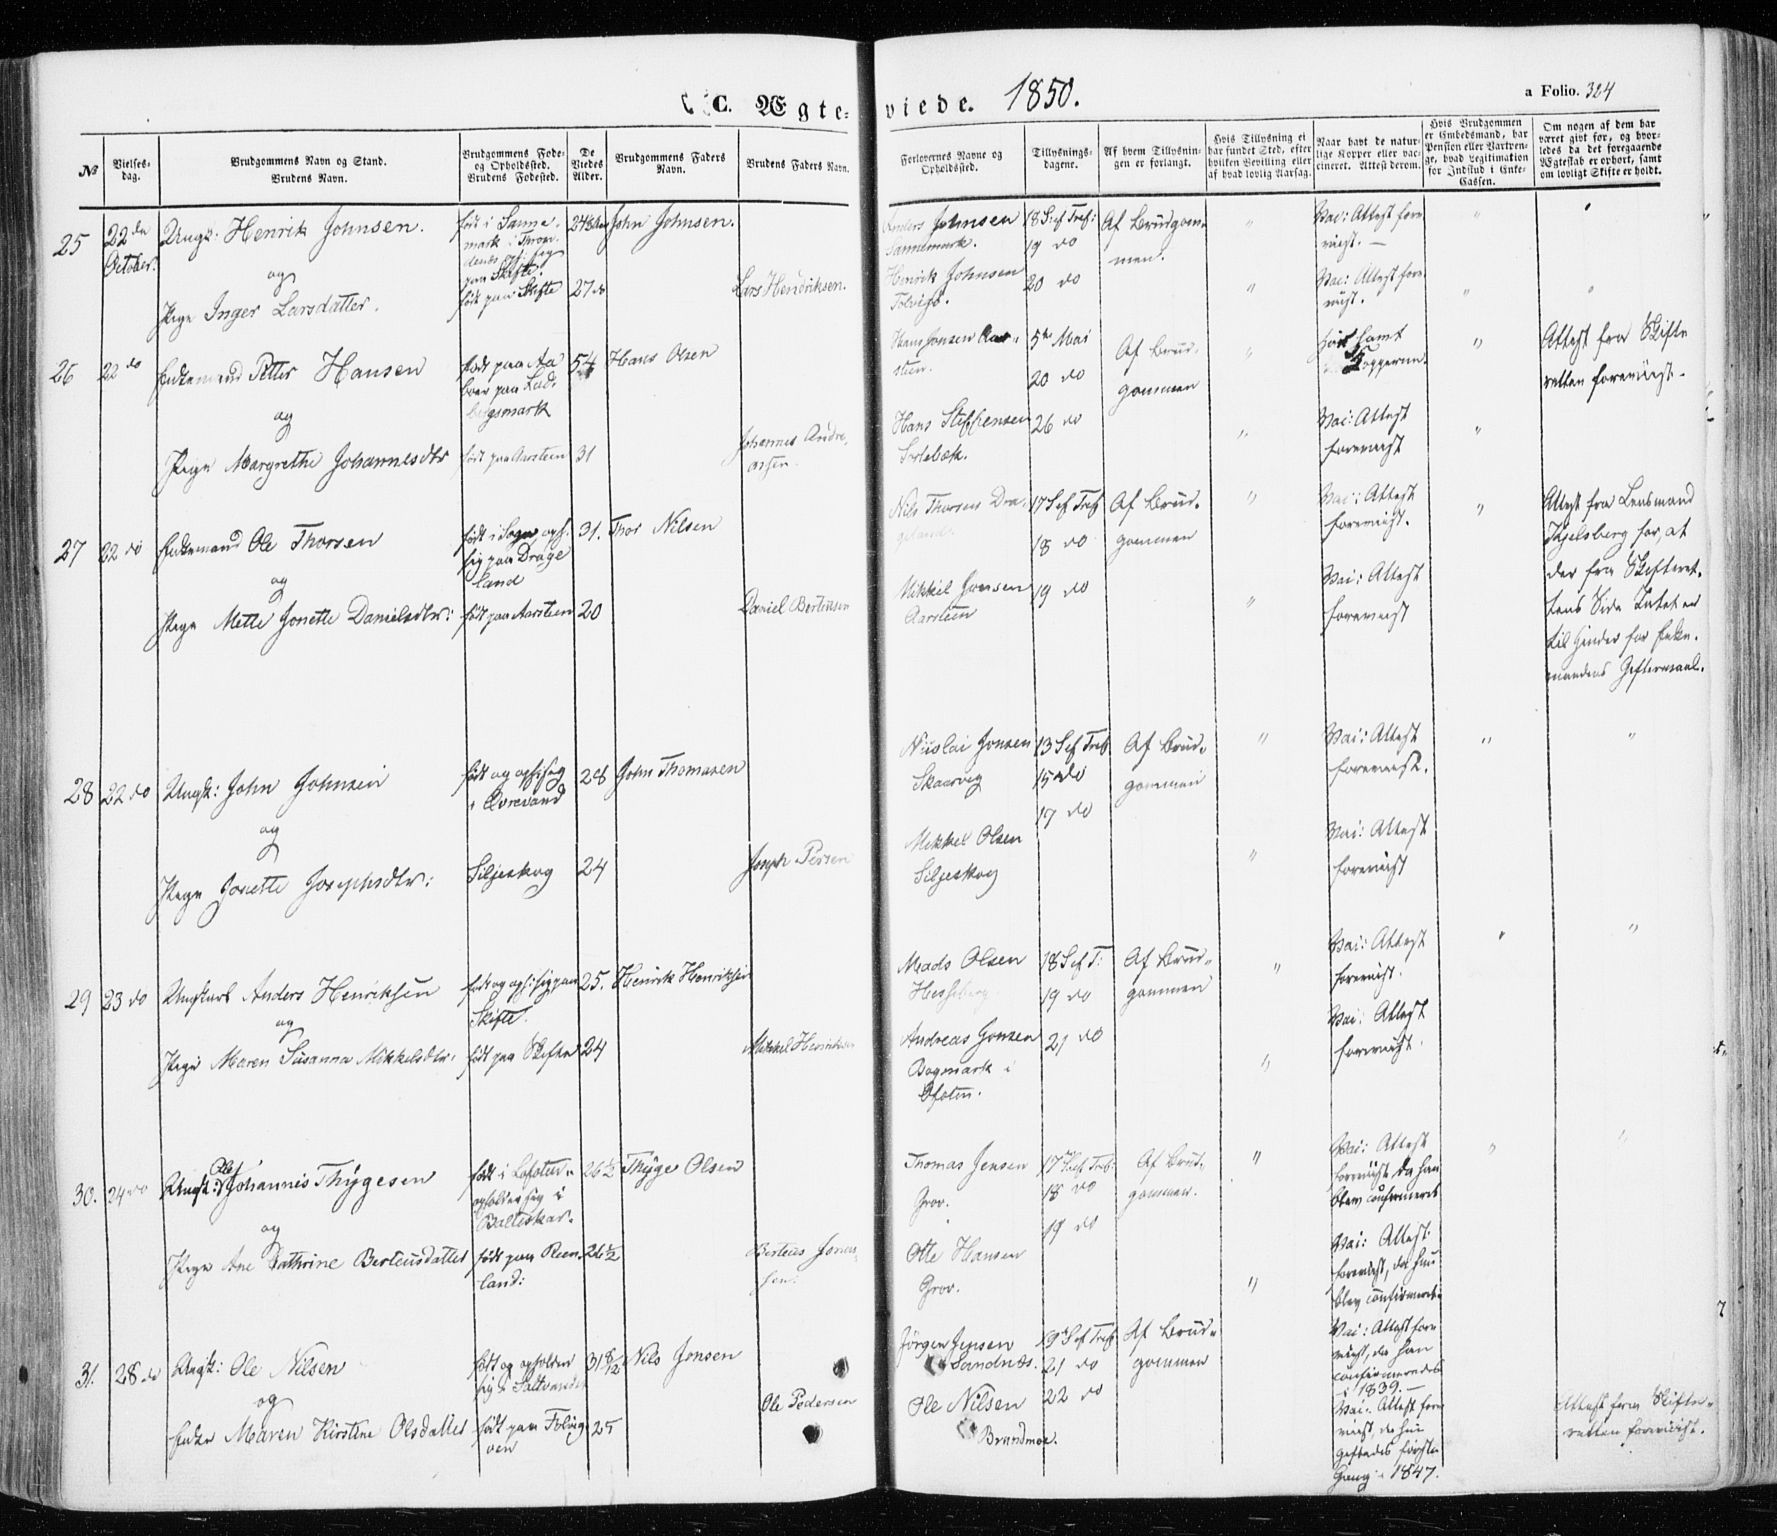 C. Ægte-
viede. 1850.
a Folio. 324
No
Vielses-
dag.
Brudgommens Navn og Stand.
Brudens Navn.
Brudgommens Føde-
og Opholdssted.
Brudens Fødested.
De
Viedes
Alder.
Brudgommens Faders
Navn.
Brudens Faders Navn.
Forlovernes Navne og
Opholdssted.
Tillysnings-
dagene.
Af hvem Tillysnin-
gen er forlangt.
Hvis Tillysning ei
har fundet Sted, efter
hvilken Bevilling eller
af hvad lovlig Aarsag.
Naar havt de natur-
lige Kopper eller vac-
cineret. Attest derom.
Hvis Brudgommen
er Embedsmand, har
Pension eller Vartpen-
ge, hvad Legitimation
for Indskud i Enke-
Cassen.
Om nogen af dem har
været givt før, og hvor-
ledes da det foregaaende
Ægteskab er ophørt, samt
om lovligt Skifte er holdt.
25
22de
October.
Ungk: Henrik Johnsen.
og
Pige Inger Larsdatter.
født i Sanne-
mark i Thron-
denes
paa Skifte.
født paa Skifte
27 do
John Johnsen.
Lars Hendriksen.
Anders Johnsen
Sannemark.
Henrik Johnsen
18 S: ef Tref:
19 do
20 do
Af Brudgom-
men.
Vac: Attest fore-
viist.
Vac: Attest fore-
viist.
26
22 do
Enkemand Petter Hansen
og
Pige Margrethe Johannesdtr
født paa Aa
boer paa Lad-
bergsmark
født paa Aarsteen
54
31
Hans Olsen
Johannes Andre-
assen.
Hans Jonsen Aar-
steen.
Hans Steffensen
Sørlebæk.
5te Mai
20 do
26 do
Af Brud-
gommen
Kopperne.
Vac: Attest
foreviist
Attest fra Skifte
retten foreviist.
27
22 do
Enkemand Ole Thorsen
og
Pige Mette Jonette Danielsdtr:
født i Sogn, oph.
sig paa Drage
land
født paa Aarsteen
31.
20
Thor Nilsen
Daniel Berteusen
Nils Thorsen Dra-
geland.
Mikkel Jonsen
Aarsteen
17 S ef Tref
18 do
19 do
Af Brud-
gommen
Vac: Attest
foreviist.
Vac: Attest
foreviist
Attest fra Lensmand
Kjelsberg for, at
der fra Skifteret-
tens Side Intet er
til Hinder for Enke-
mandens Giftermaal.
28
22 do
Ungk: John Johnsen
og
Pige Jonette Josephsdtr:
født og oph: sig
i Øvrevand
Siljeskog
28
24
John Thomasen
Joseph Persen
Nicolai Jonsen
Skaarvig
Mikkel Olsen
Siljeskog
13 S ef Tref
15 do
17 do
Af Brud-
gommen
Vac: Attest
foreviist.
Vac: Attest
foreviist
29
23 do
Ungkarl Anders Henriksen
og
Pige Maren Susanna Mikkelsdtr:
født og oph: sig paa
Skifte.
født paa Skifte
25.
24
Henrik Henriksen
Mikkel Henriksen
Mads Olsen
Hesseberg.
Andreas Jonsen
Bogmark i
Ofoten.
18 S ef T:
19 do
21 do
Af Brud-
gommen
Vac: Attest
foreviist.
Vac: Attest
foreviist.
30.
24 do
Ungk: Ole Johannis Thygesen
og
Pige Ane Cathrine Berteusdatter
født i Lofoten-
opholder sig i
Balteskar.
født paa Reen-
land:
26 1/2
26 1/2
Thyge Olsen
Berteus Jonas-
sen.
Thomas Jensen
Grov.
Otte Hansen
Grov.
17 S ef Tref:
18 do
19 do
Af Brud-
gommen.
Vac: Attest
foreviist da han
blev confirmeret
Vac: Attest
foreviist, da hun
blev confirmeret
31.
28 do
Ungk: Ole Nilsen
og
Enke Maren Kirstine Olsdatter
født og opholder
sig i Saltvandet
født paa Folvig-
øen
31 8/12
25
Nils Jonsen
Ole Pedersen
Jörgen Jensen
Sandnæs.
Ole Nilsen
Brandmoe.
19 S ef Tref
21 do
22 do
Af Brud-
gommen
Vac: Attest fore-
viist, da han
confirmeredes
i 1839.
Vac: Attest fore-
viist, da hun
giftedes første
Gang i 1847.
Attest fra Skifte-
retten foreviist.